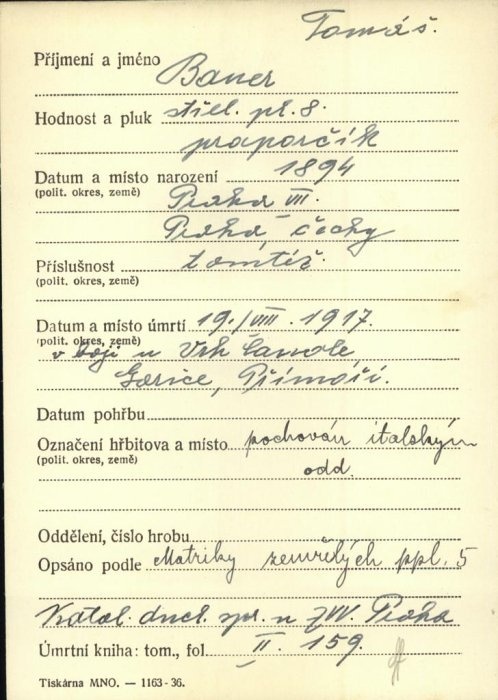 Tomáš.
Příjmení a jméno Bauer
Hodnost a pluk střel. pl. 8.
praporčík
Datum a místo narození 1894
(polit. okres, země) Praha VII.
Praha Čechy
Příslušnost tamtéž.
(polit. okres, země)
Datum a místo úmrtí 19./VIII. 1917.
(polit. okres, země)
v boji u Vrh
Gorice, Přímoří.
Datum pohřbu
Označení hřbitova a místo pochován italským
(polit. okres, země)
odd.
Oddělení, číslo hrobu
Opsáno podle Matriky zemřelých ppl. 5
Katol. duch. spr. u ZVV. Praha
Úmrtní kniha: tom., fol. II. 159.
Tiskárna MNO. — 1163-36.